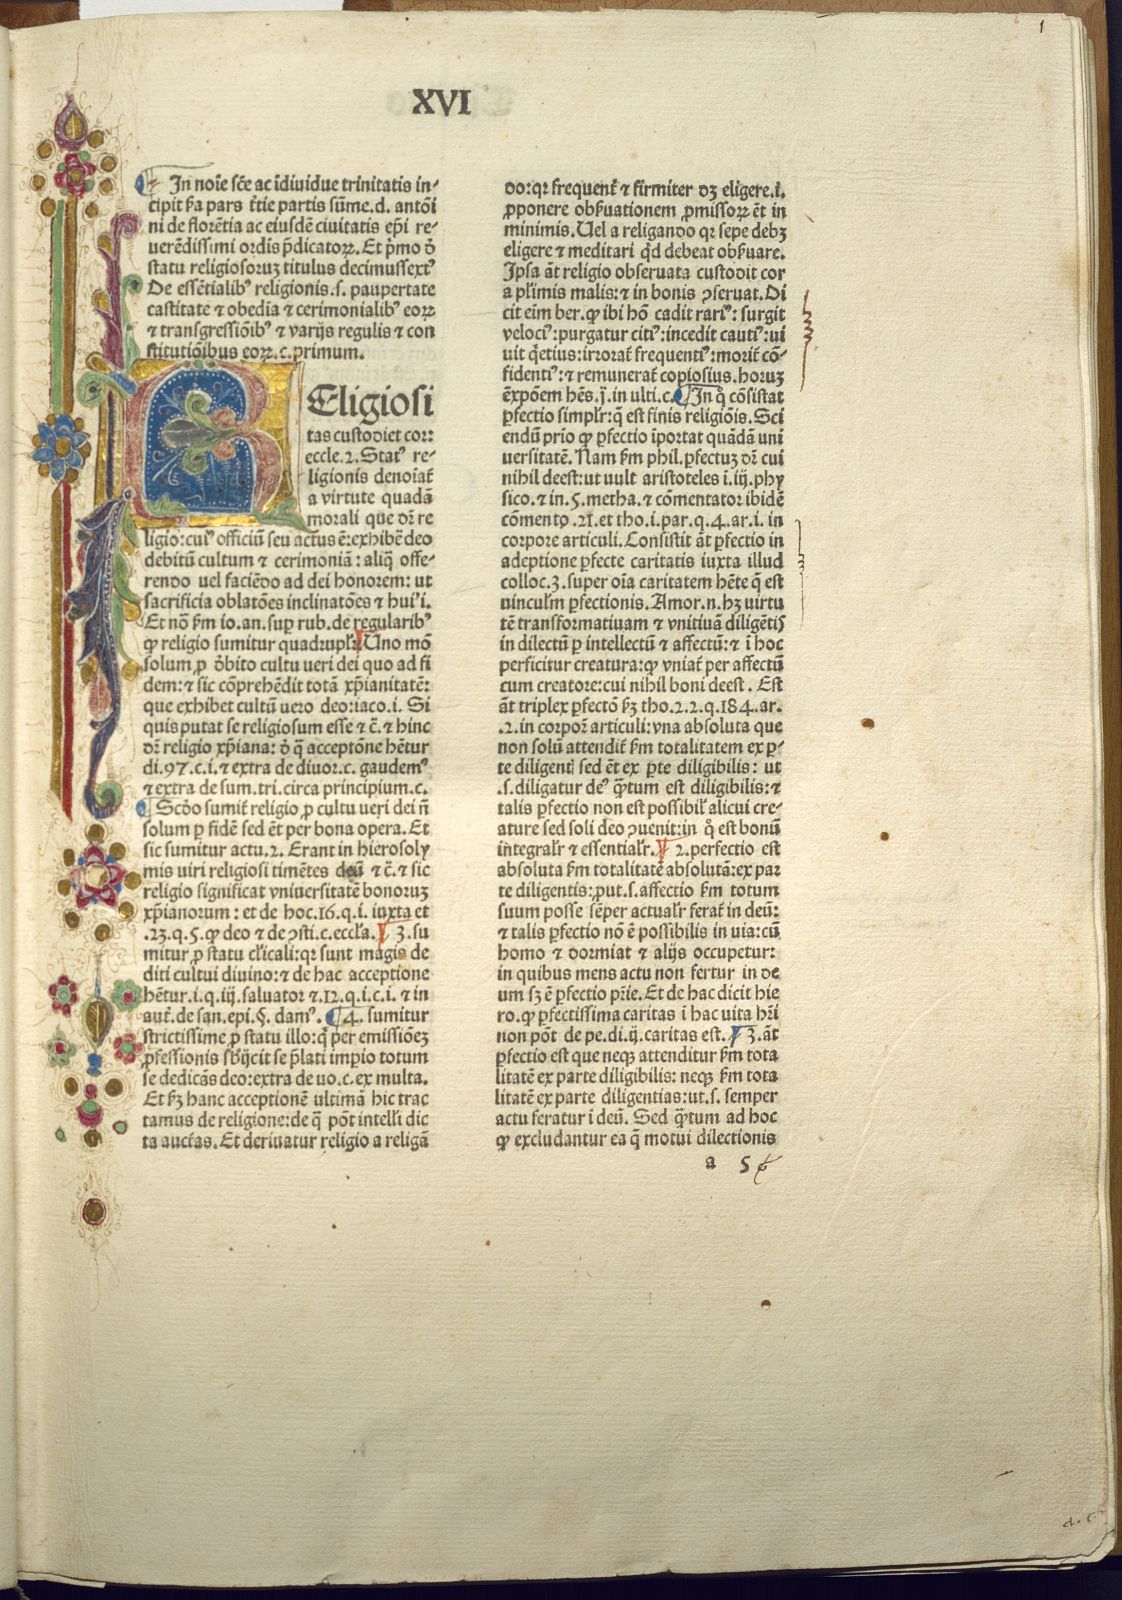 1
XVI
In noīe scē ac īdiuidue trinitatis in-
cipit ꝑa pars t̄tie partis sūme.d. antōi
ni de florētia ac eiusdē ciuitatis ep̄i re-
uerēdissimi ordīs p̄dicatoꝝ. Et p̄mo ð
statu religiosoruꝫ titulus decimussextꝰ
De essētialibꝰ religionis.s. paupertate
castitate ⁊ obedīa ⁊ cerimonialibꝰ eoꝝ
⁊ transgressiōībꝰ ⁊ varijs regulis ⁊ con
stitutiōibus eoꝝ.c.primum.
Religiosi
tas custodiet cor:
eccle.2. Statꝰ re-
ligionis denoīat̄
a virtute quadā
morali que dr̄ re
ligio: cuiꝰ officiū seu actus ē: exhibē deo
debitū cultum ⁊ cerimoniā: aliq̄ offe-
rendo uel faciēdo ad dei honorem: ut
sacrificia oblatōes inclinatōes ⁊ huiꝰi.
Et nō ẜm io.an.sup rub.de regularibꝰ
ꝙ religio sumitur quadruplr̄. Uno mō
solum ꝓ ðbito cultu ueri dei quo ad fi
dem: ⁊ sic cōprehēdit totā xp̄ianitatē:
que exhibet cultū uero deo: iaco.i. Si
quis putat se religiosum esse ⁊ c̄. ⁊ hinc
dr̄ religio xp̄iana: ð q̄ acceptōne hētur
di.97.c.i.⁊ extra de diuor.c. gaudemꝰ
⁊ extra de sum.tri.circa principium.c.
Scðo sumit̄ religio ꝓ cultu ueri dei n̄
solum ꝑ fidē sed ēt per bona opera. Et
sic sumitur actu.2. Erant in hierosoly
mis uiri religiosi timētes deū ⁊ c̄. ⁊ sic
religio significat vniuersitatē bonoruꝫ
xp̄ianorum: et de hoc.16.q.i. iuxta et
.23.q.5.ꝙ deo ⁊ de ꝯsti.c.eccl̄a. 3. su
mitur ꝓ statu cl̄icali: qr sunt magis de
diti cultui diuino: ⁊ de hac acceptione
hētur.i.q.iij.saluator ⁊.12.q.i.c.i. ⁊ in
aut̄.de san.epi.§. damꝰ. 4. sumitur
strictissime ꝓ statu illo: q̄ per emissiōeꝫ
ꝓfessionis sb̄ijcit se p̄lati impio totum
se dedicās deo: extra de uo.c.ex multa.
Et ẜꝫ hanc acceptionē ultimā hic trac
tamus de religione: de q̄ pōt intelli dic
ta auct̄as. Et deriuatur religio a religā
do: qr frequent̄ ⁊ firmiter dꝫ eligere.i.
ꝓponere obẜuationem ꝓmissoꝝ ēt in
minimis. Uel a religando qr sepe debꝫ
eligere ⁊ meditari q̄d debeat obẜuare.
Ipsa āt religio obseruata custodit cor
a pl̄imis malis: ⁊ in bonis ꝯseruat. Di
cit eīm ber.ꝙ ibi hō cadit rariꝰ: surgit
velociꝰ: purgatur citiꝰ: incedit cautiꝰ: ui
uit q̄etius: irrorat̄ frequentiꝰ: morit̄ cō-
fidentiꝰ: ⁊ remunerat̄ copiosius. horuꝫ
ēxpōem hēs.j.in ulti.c. In q̊ cōsistat
ꝑfectio simplr̄: q̄ est finis religiōis. Sci
endū prio ꝙ ꝑfectio īportat quādā uni
uersitatē. Nam ẜm phil.ꝑfectuꝫ dr̄ cui
nihil deest: ut uult aristoteles ī.iij.phy
sico.⁊ in.5.metha.⁊ cōmentator ibidē
cōmento.21.et tho.i.par.q.4.ar.i. in
corpore articuli. Consistit āt ꝑfectio in
adeptione ꝑfecte caritatis iuxta illud
colloc.3.super oīa caritatem hēte q̄ est
uinculm̄ ꝑfectionis. Amor.n.hꝫ uirtu
tē transformatiuam ⁊ vnitiuā diligētis
in dilectū ꝑ intellectū ⁊ affectū: ⁊ ī hoc
perficitur creatura: ꝙ vniat̄ per affectū
cum creatore: cui nihil boni deest. Est
āt triplex ꝑfectō ẜꝫ tho.2.2.q.184.ar.
.2.in corpor̄ articuli: vna absoluta que
non solū attendit̄ ẜm totalitatem ex ꝑ-
te diligentis sed ēt ex ꝑte diligibilis: ut
.s.diligatur deꝰ q̄tum est diligibilis: ⁊
talis ꝑfectio non est possibil̄ alicui cre-
ature sed soli deo ꝯuenit: in q̊ est bonū
integralr̄ ⁊ essentialr̄. 2. perfectio est
absoluta ẜm totalitatē absolutā: ex par
te diligentis: ꝓut.s.affectio ẜm totum
suum posse sēper actualr̄ ferat̄ in deū:
⁊ talis ꝑfectio nō ē possibilis in uia: cū
homo ⁊ dormiat ⁊ alijs occupetur:
in quibus mens actu non fertur in de
um sꝫ ē ꝑfectio pr̄ie. Et de hac dicit hie
ro.ꝙ ꝑfectissima caritas ī hac uita hr̄i
non pōt de pe.di.ij.caritas est. 3. āt
ꝑfectio est que neqꝫ attenditur ẜm tota
litatē ex parte diligibilis: neqꝫ ẜm tota
litatē ex parte diligentias: ut.s. semper
actu feratur ī deū. Sed q̄tum ad hoc
ꝙ excludantur ea q̄ motui dilectionis
a 5